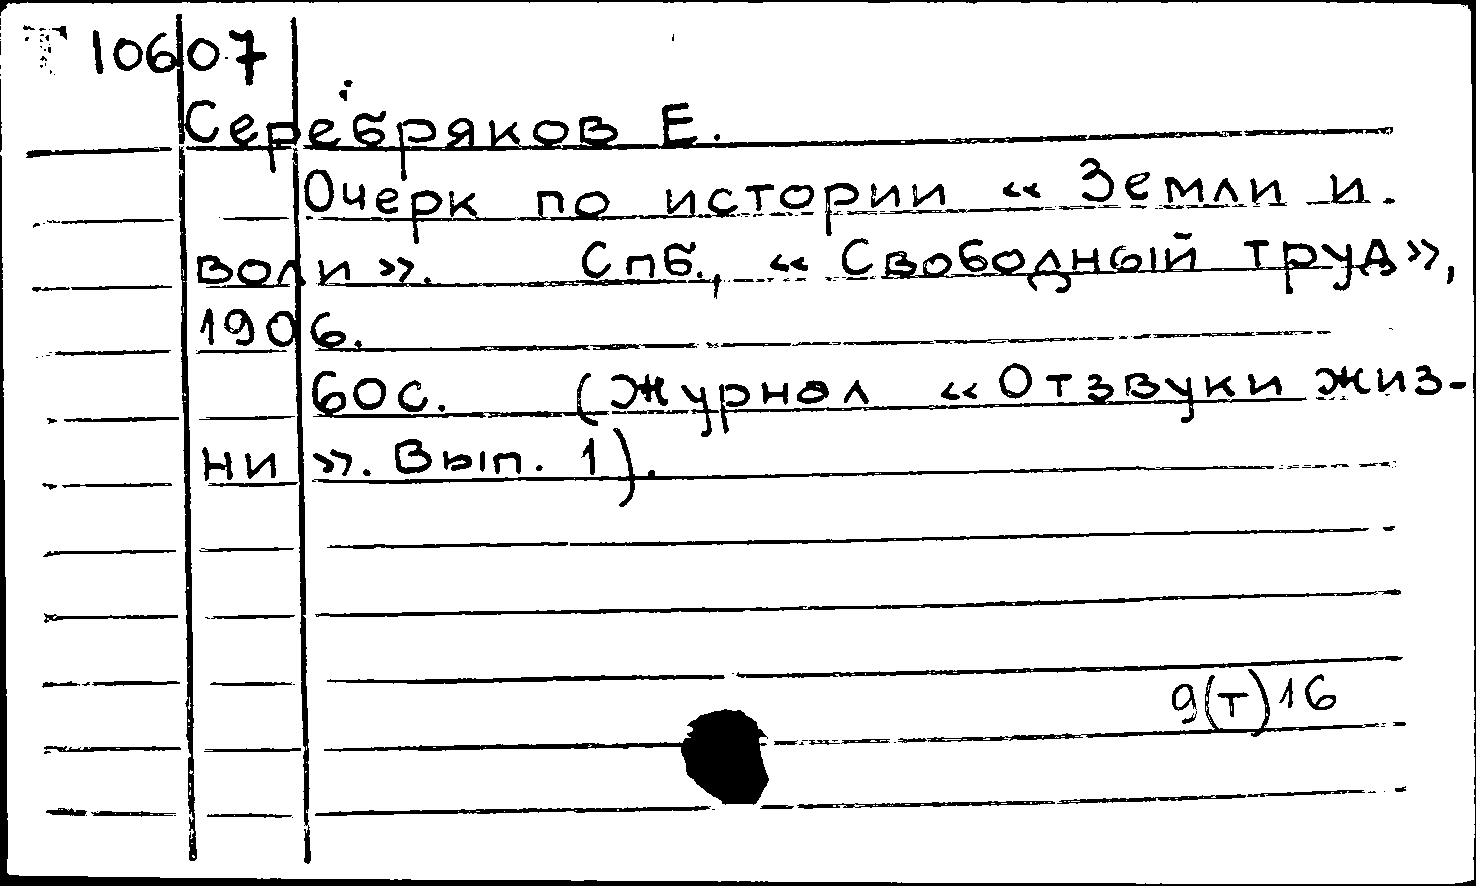 Т 10607
Серебряков Е.
Очерк по истории « Земли и
воли ». Спб., « Свободный труд »,
1906.
60с. (Журнал « Отзвуки жиз-
ни ». Вып. 1).
9(т)16